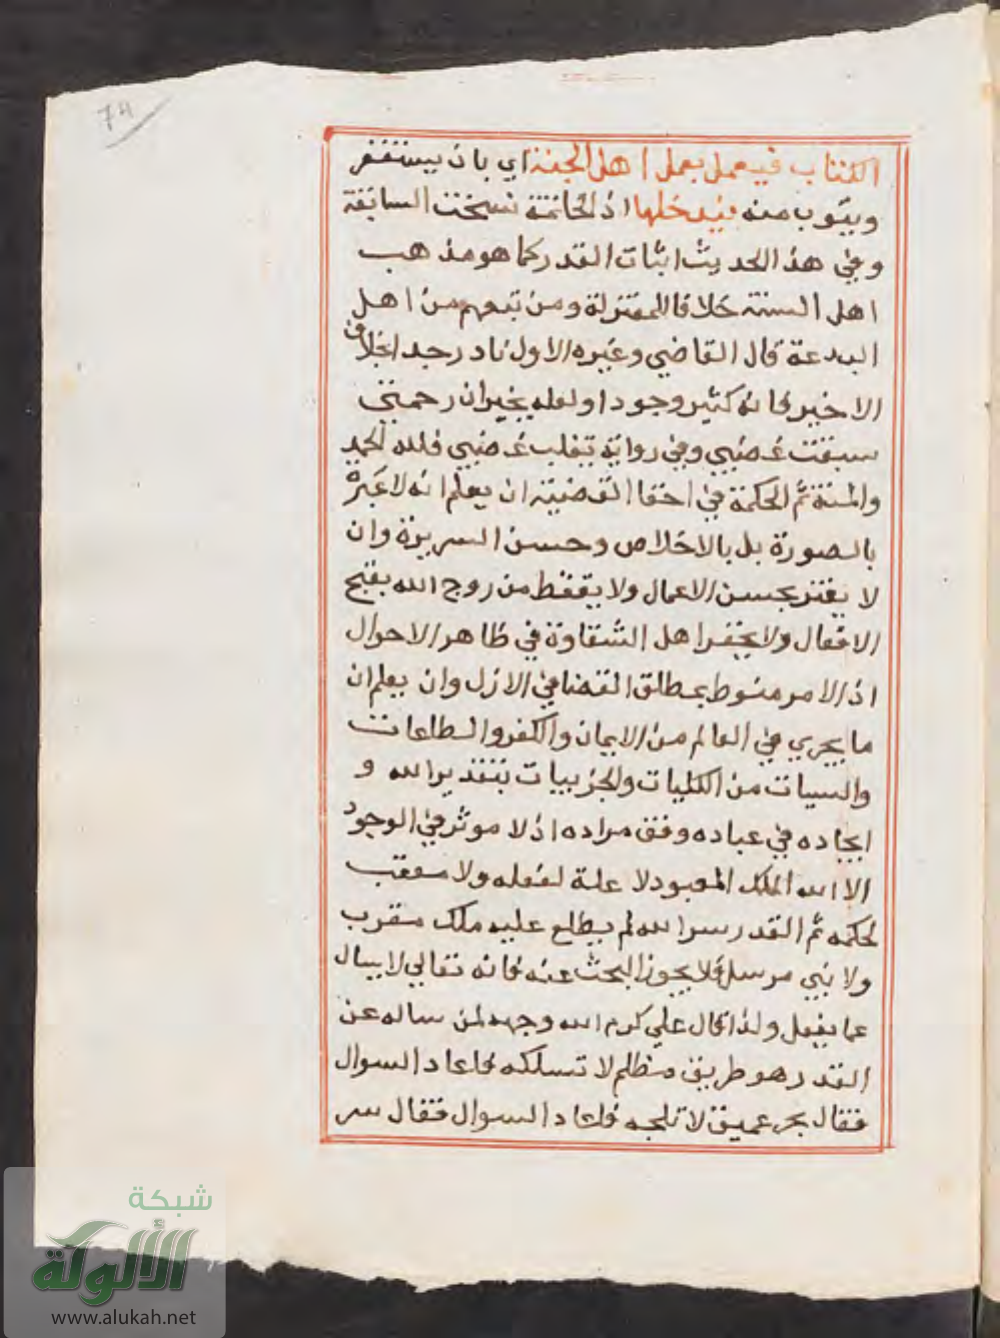 74
الكتاب فيعمل بعمل اهل الجنة اي بان يستغفر
ويتوب منه فيدخلها اذ الخاتمة نسخت السابقة
وفي هذا الحديث اثبات القدر كما هو مذهب
اهل السنة خلافا للمعتزلة ومن تبعهم من اهل
البدعة قال القاضي وغيره الاول نادر جدا بخلاف
الاخير فانه كثير وجودا ولعله بخبر ان رحمتي
سبقت غضبي وفي رواية تغلب غضبي فلله الحمد
والمنة ثم الحكمة في اخفا القضية ان يعلم انه لا عبرة
بالصورة بل بالاخلاص وحسن السريرة وان
لا يغتر بحسن الاعمال ولا يقنط من روح الله بقبح
الافعال ولا يحقر اهل الشقاوة في ظاهر الاحوال
اذ الامر منوط بمطلق القضا في الازل وان يعلم ان
ما يجري في العالم من الايمان والكفر والطاعات
والسيات من الكليات والجزييات بتقدير الله و
ايجاده في عباده وفق مراده اذ لا موثر في الوجود
الا الله الملك المعبود لا علة لفعله ولا معقب
لحكمه ثم القدر سر الله لم يطلع عليه ملك مقرب
ولا نبي مرسل فلا يجوز البحث عنه فانه تعالى لا يسال
عما يفعل ولذا قال علي كرم الله وجهه لمن ساله عن
القدر هو طريق مظلم لا تسلكه فاعاد السوال
فقال بحر عميق لا تلجه فاعاد السوال فقال سر
شبكة
الألوكة
www.alukah.net